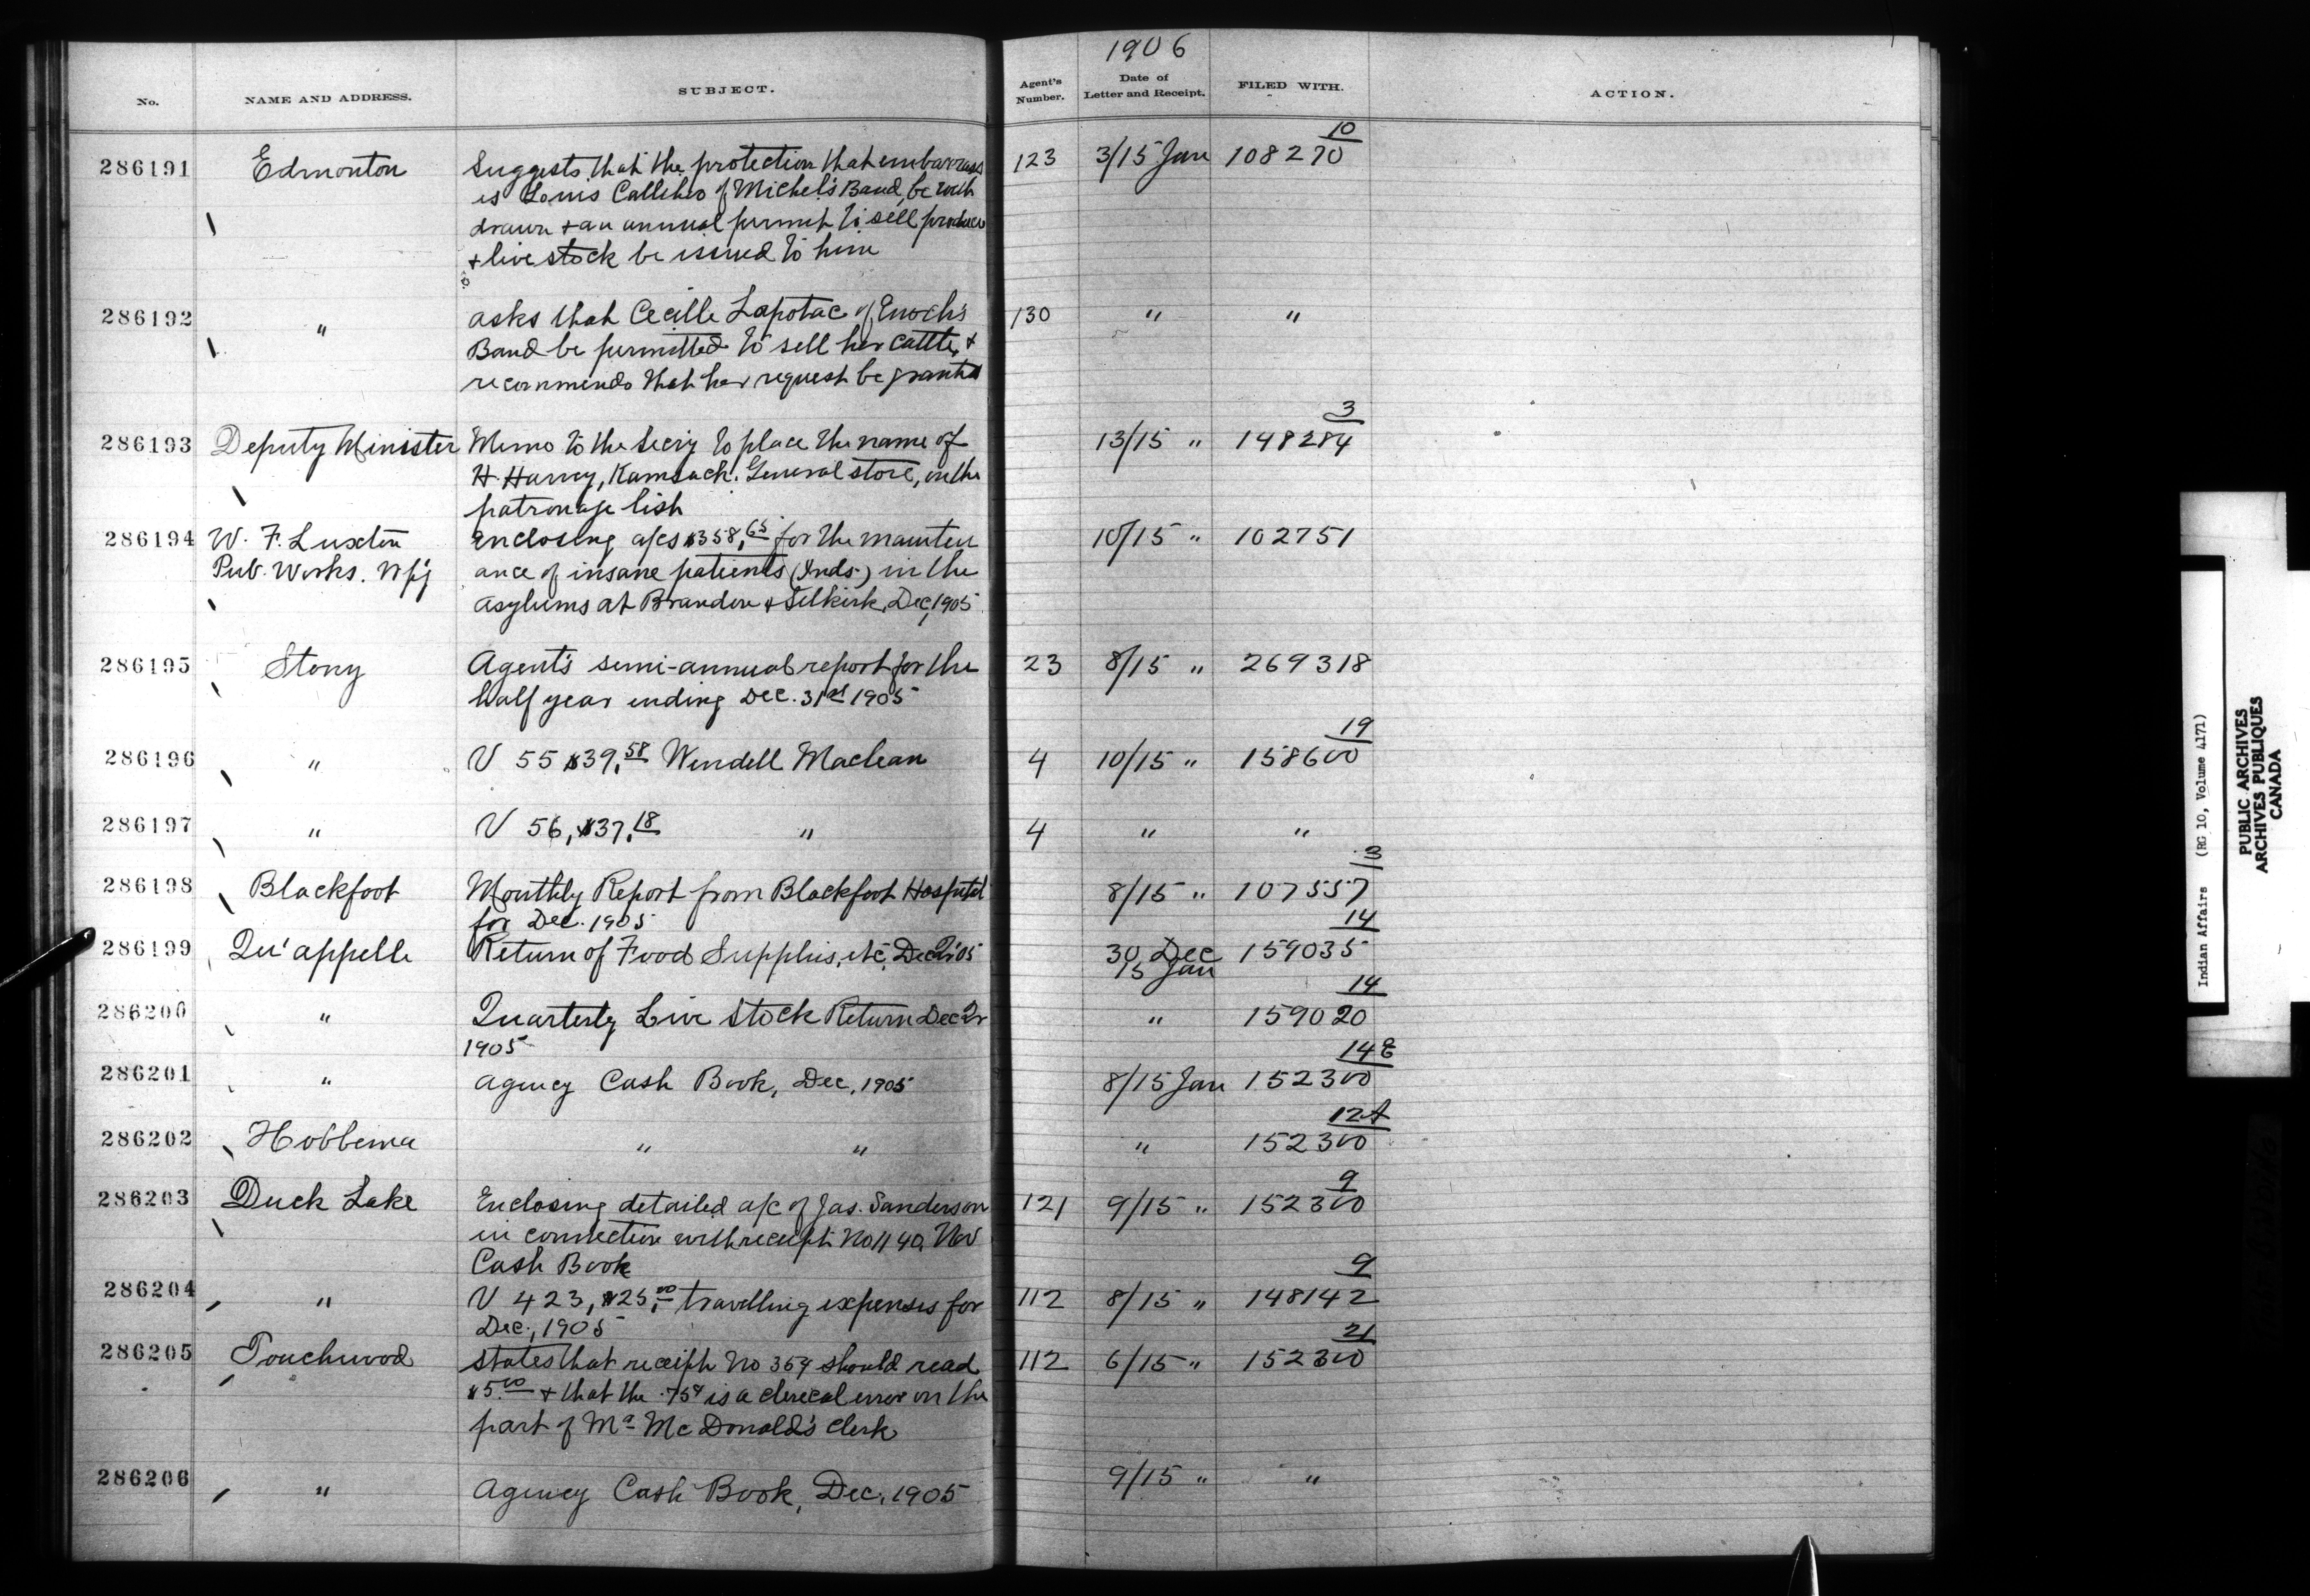 1906
No. NAME AND ADDRESS. SUBJECT. Agent's Number. Date of Letter and Receipt. FILED WITH. ACTION.
10
286191 Edmonton Suggests that the protection that embarrass 123 3/15 Jan 108270
es Louis Callihoo of Michel's Band, be with
drawn + an annual permit to sell produce
+ live stock be issued to him
286192 " asks that Cecille Lapotac of Enoch's 130 " "
Band be permitted to sell her cattle, +
recommends that her request be granted
3
286193 Deputy Minister Memo to the Secr'y to place the name of 13/15 " 148284
H. Harvey, Kamsack. General store, on the
patronage list
286194 W. F. Luxton enclosing a/cs $358.65 for the mainten 10/15 " 102751
Pub. Works. Wpg ance of insane patients (Inds.) in the
asylums at Brandon & Selkirk, Dec, 1905
286195 Stony Agent's semi-annual report for the 23 8/15 " 269318
half year ending Dec. 31st 1905
19
286196 " V 55 $39.58 Wendell Maclean 4 10/15 " 158600
286197 " V 56, $37.18 " 4 " "
3
286198 Blackfoot Monthly Report from Blackfoot Hospital 8/15 " 107557
for Dec. 1905
14
286199 Qu'appelle Return of Food Supplies, etc, Dec Qr '05 30 Dec 159035
15 Jan
14
286200 " Quarterly Live Stock Return Dec Qr " 159020
1905
14 E
286201 " Agency Cash Book, Dec, 1905 8/15 Jan 152300
12 A
286202 Hobbema " " " 152300
9
286203 Duck Lake Enclosing detailed a/c of Jas. Sanderson 121 9/15 " 152300
in connection with receipt No 1140, Nov
Cash Book
9
286204 " V 423, $25.00 travelling expenses for 112 8/15 " 148142
Dec., 1905
21
286205 Touchwood States that receipt No 354 should read 112 6/15 " 152300
$5.00 + that the .75¢ is a clerical error on the
part of Mr McDonald's clerk
286206 " Agency Cash Book, Dec. 1905 9/15 " "
Indian Affairs (RG 10, Volume 4171)
PUBLIC ARCHIVES
ARCHIVES PUBLIQUES
CANADA